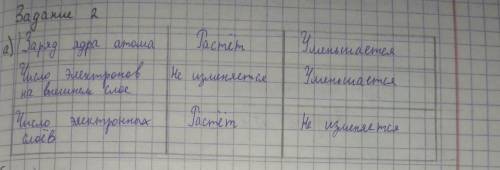 Задание 2
а) Заряд ядра атома Растёт Уменьшается
Число электронов Не изменяется Уменьшается
на внешнем слое
Число электронных Растёт Не изменяется
слоёв